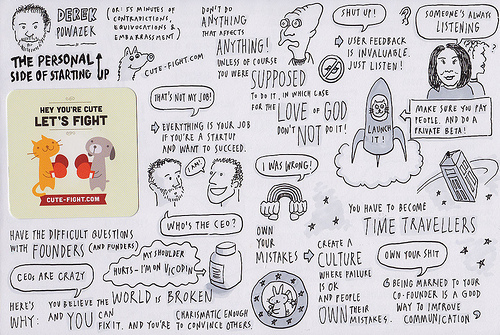 DEREK
POWAZEK
(OR: 55 MINUTES OF
CONTRADICTIONS,
EQUIVOCATIONS &
EMBARRASSMENT)
THE PERSONAL
SIDE OF STARTING UP
CUTE-FIGHT.COM
HEY YOU'RE CUTE
LET'S FIGHT
CUTE-FIGHT.COM
DON'T DO
ANYTHING
THAT AFFECTS
ANYTHING!
UNLESS OF COURSE
YOU WERE SUPPOSED
TO DO IT, IN WHICH CASE
FOR THE LOVE OF GOD
DON'T NOT DO IT!
SHUT UP!
USER FEEDBACK
IS INVALUABLE.
JUST LISTEN!
?
SOMEONE'S ALWAYS
LISTENING
?
THAT'S NOT MY JOB!
EVERYTHING IS YOUR JOB
IF YOU'RE A STARTUP
AND WANT TO SUCCEED.
LAUNCH
IT!
MAKE SURE YOU PAY
PEOPLE. AND DO A
PRIVATE BETA!
I AM!
WHO'S THE CEO?
I WAS WRONG!
HAVE THE DIFFICULT QUESTIONS
WITH FOUNDERS (AND FUNDERS)
CEOs ARE CRAZY
MY SHOULDER
HURTS - I'M ON VICODIN
OWN
YOUR
MISTAKES
CREATE A
CULTURE
WHERE FAILURE
IS OK
AND PEOPLE
OWN THEIR
MISTAKES.
YOU HAVE TO BECOME
TIME TRAVELLERS
OWN YOUR SHIT
BEING MARRIED TO YOUR
CO-FOUNDER IS A GOOD
WAY TO IMPROVE
COMMUNICATION
HERE'S
WHY:
YOU BELIEVE THE WORLD IS BROKEN
AND YOU CAN
FIX IT. AND YOU'RE
CHARISMATIC ENOUGH
TO CONVINCE OTHERS.